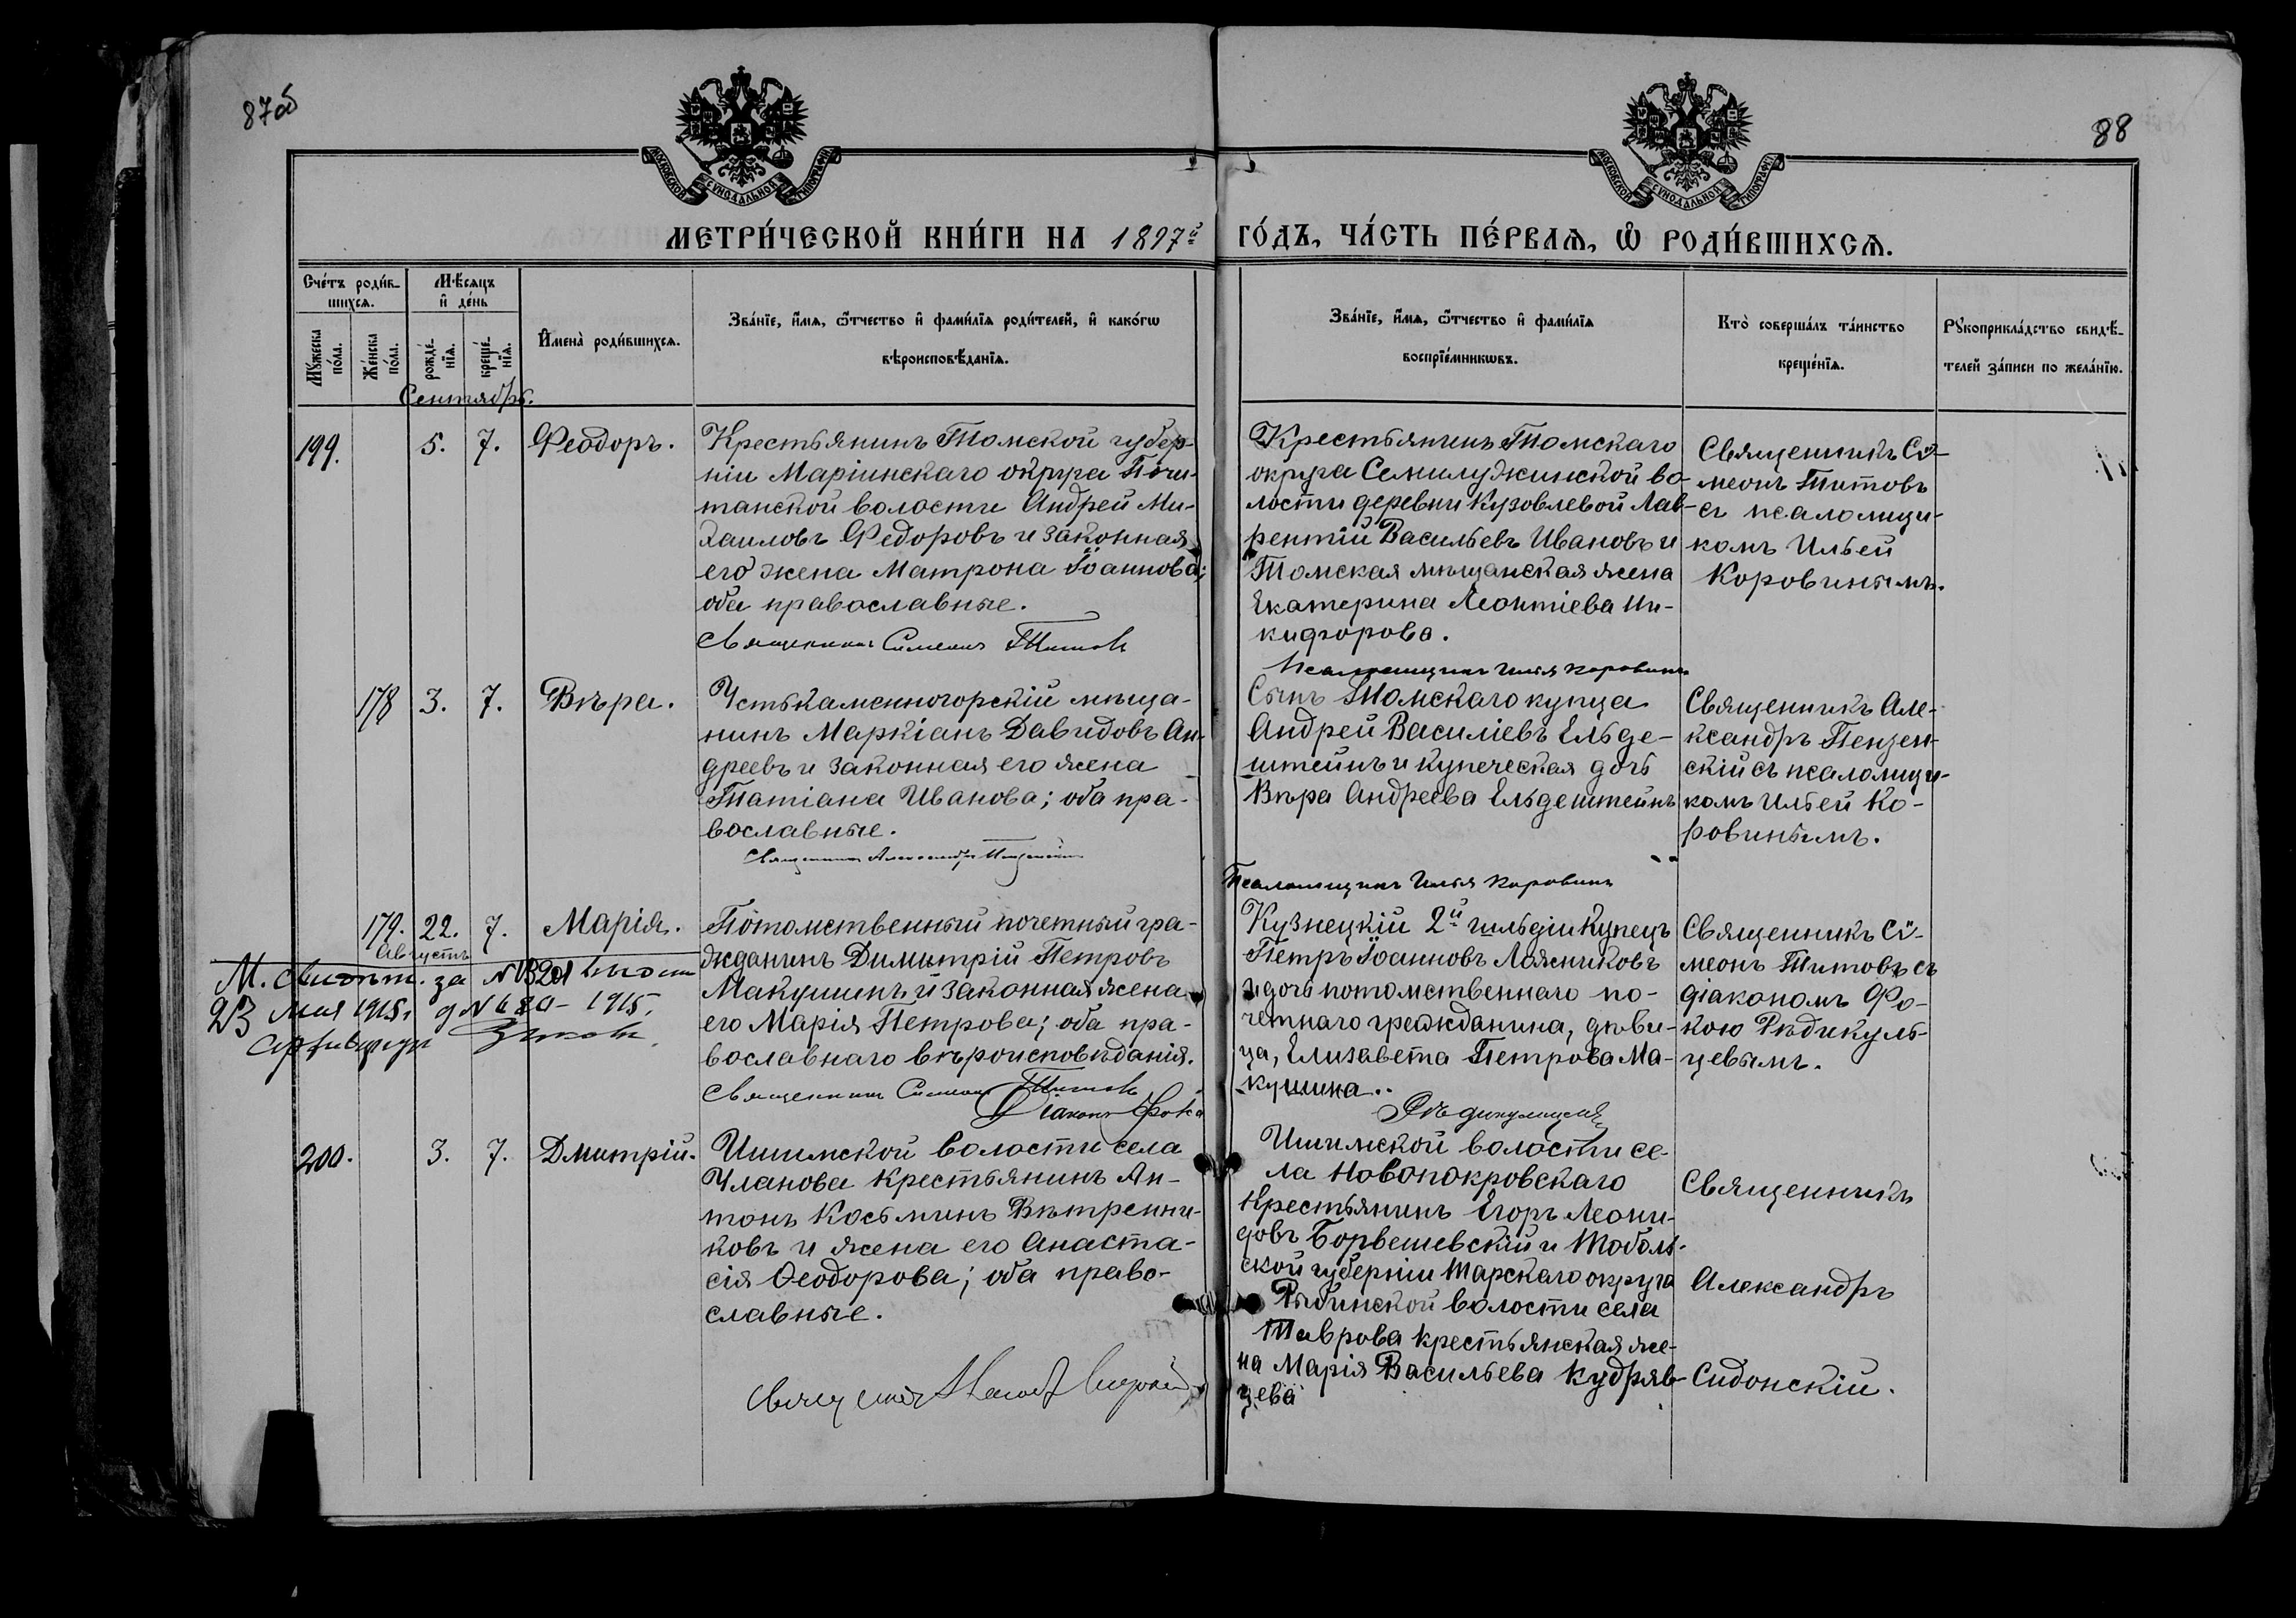 87об
88
МОСКОВСКОЙ СѴНОДАЛЬНОЙ ТИПОГРАФІИ
МОСКОВСКОЙ СѴНОДАЛЬНОЙ ТИПОГРАФІИ
МЕТРИ́ЧЕСКОЙ КНИ́ГИ НА 1897й ГО́ДЪ, ЧА́СТЬ ПЕ́РВАЯ, Ѡ РОДИ́ВШИХСЯ.
Сче́тъ роди́в-
шихся.
Мѣ́сяцъ
и де́нь
Му́жеска
по́ла.
Же́нска
по́ла.
рожде́-
нїя.
креще́-
нїя.
Имена̀ роди́вшихся.
Зва́нїе, и́мя, ѻ́тчество и фами́лїя роди́телей, и како́гѡ
вѣроисповѣ́данїя.
Зва́нїе, и́мя, ѻ́тчество и фами́лїя
воспрїе́мникѡвъ.
Кто̀ соверша́лъ та́инство
креще́нїя.
Рꙋкоприкла́дство свидѣ́-
телей за́писи по жела́нїю.
Сентябрь.
199.
5.
7.
Феодоръ.
Крестьянинъ Томской губер-
ніи Маріинскаго округа Почи-
танской волости Андрей Ми-
хаиловъ Федоровъ и законная
его жена Матрона Іоаннова;
оба православные.
Священникъ Симеонъ Титовъ
Крестьянинъ Томскаго
округа Семилужинской во-
лости деревни Кузовлевой Лав-
рентій Васильевъ Ивановъ и
Томская мѣщанская жена
Екатерина Леонтіева Ни-
кифорова.
Псаломщикъ Илья Коровинъ
Священникъ Сѵ-
меонъ Титовъ
съ псаломщи-
комъ Ильей
Коровинымъ.
178
3.
7.
Вѣра.
Устькаменногорскій мѣща-
нинъ Маркіанъ Давидовъ Ан-
дреевъ и законная его жена
Татіана Иванова; оба пра-
вославные.
Священникъ Александръ Пензенскій
Сынъ Томскаго купца
Андрей Василіевъ Ельде-
штейнъ и купеческая дочь
Вѣра Андреева Ельдештейнъ
Псаломщикъ Илья Коровинъ
Священникъ Але-
ксандръ Пензен-
скій съ псаломщи-
комъ Ильей Ко-
ровинымъ.
179.
22.
Августъ
7.
Марія.
Потомственный почетный гра-
жданинъ Димитрій Петровъ
Макушинъ и законная жена
его Марія Петрова; оба пра-
вославнаго вѣроисповѣданія.
Священникъ Симеонъ Титовъ
Діаконъ Фока
Рѣдикульцевъ
Кузнецкій 2й гильдіи Купецъ
Петръ Іоанновъ Ложниковъ
и дочь потомственнаго по-
четнаго гражданина, дѣви-
ца, Елизавета Петрова Ма-
кушина.
Священникъ Сѵ-
меонъ Титовъ съ
діакономъ Фо-
кою Рѣдикуль-
цевымъ.
М. свидѣт. за №
23 мая 1915 г. д № 680 - 1915.
200.
3.
7.
Дмитрій.
Ишимской волости села
Уланова крестьянинъ Ан-
тонъ Косьминъ Вѣтренни-
ковъ и жена его Анаста-
сія Ѳеодорова; оба право-
славные.
Ишимской волости се-
ла Новопокровскаго
крестьянинъ Егоръ Леони-
довъ Борвешевскій и Тоболь-
ской губерніи Тарскаго округа
Рыбинской волости села
Таврова крестьянская же-
на Марія Васильева Кудряв-
цева
Священникъ
Александръ
Сидонскій.